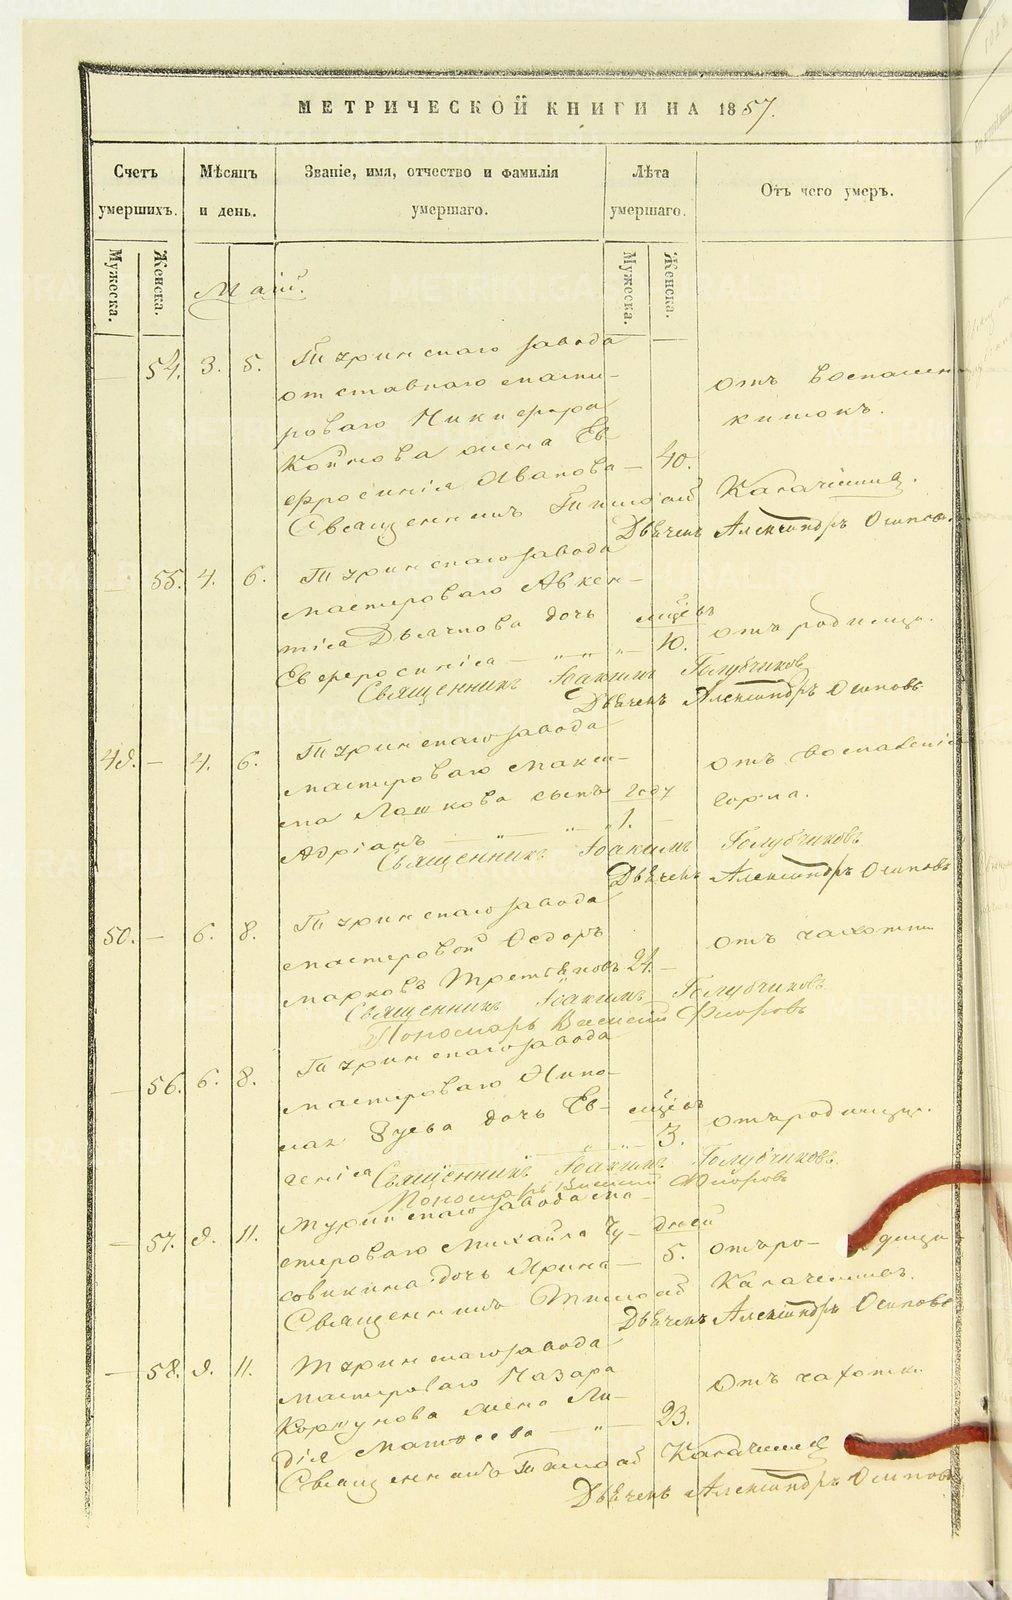 МЕТРИЧЕСКОЙ КНИГИ НА 1857.
Счетъ умершихъ. Мѣсяцъ и день. Званіе, имя, отчество и фамилія умершаго. Лѣта умершаго. Отъ чего умеръ.
Мужеска. Женска. Мужеска. Женска.
Маій.
— 54. 3. 5. Туринскаго завода —
отставнаго масте- отъ воспален
роваго Никифора кишокъ.
жена Ев-
фросинія Иванова — 40.
Священникъ Тимофей
Дьячекъ Александръ Осиповъ.
— 55. 4. 6. Туринскаго завода
мастероваго Авксен-
тія Дьячкова дочь мцевъ отъ родимца.
Евфросинія — „ — „ — 10.
Священникъ Іоакимъ Голубчиковъ
Дьячекъ Александръ Осиповъ
49. — 4. 6. Туринскаго завода
мастероваго Макси- отъ воспаленія
ма сынъ году горла.
Адріанъ — „ — „ 1. —
Священникъ Іоакимъ Голубчиковъ
Дьячекъ Александръ Осиповъ
50. — 6. 8. Туринскаго завода
мастеровой Ѳедоръ отъ чахотки
Марковъ Третьяковъ 24. —
Священникъ Іоакимъ Голубчиковъ
Пономарь Василій Флоровъ
— 56. 6. 8. Туринскаго завода
мастероваго Нико-
лая дочь Ев- мцевъ отъ родимца.
генія — „ — „ — 3.
Священникъ Іоакимъ Голубчиковъ.
Пономарь Василій Флоровъ
— 57. 9. 11. Туринскаго завода ма-
стероваго Михайла Чу- дней
совикина дочь Ирина — 5. отъ родимца
Священникъ Тимофей
Дьячекъ Александръ Осиповъ
— 58. 9. 11. Туринскаго завода
мастероваго Назара отъ чахотки
Коршунова жена Ли-
дія Матвѣева — „ — 23.
Священникъ Тимофей
Дьячекъ Александръ Осиповъ